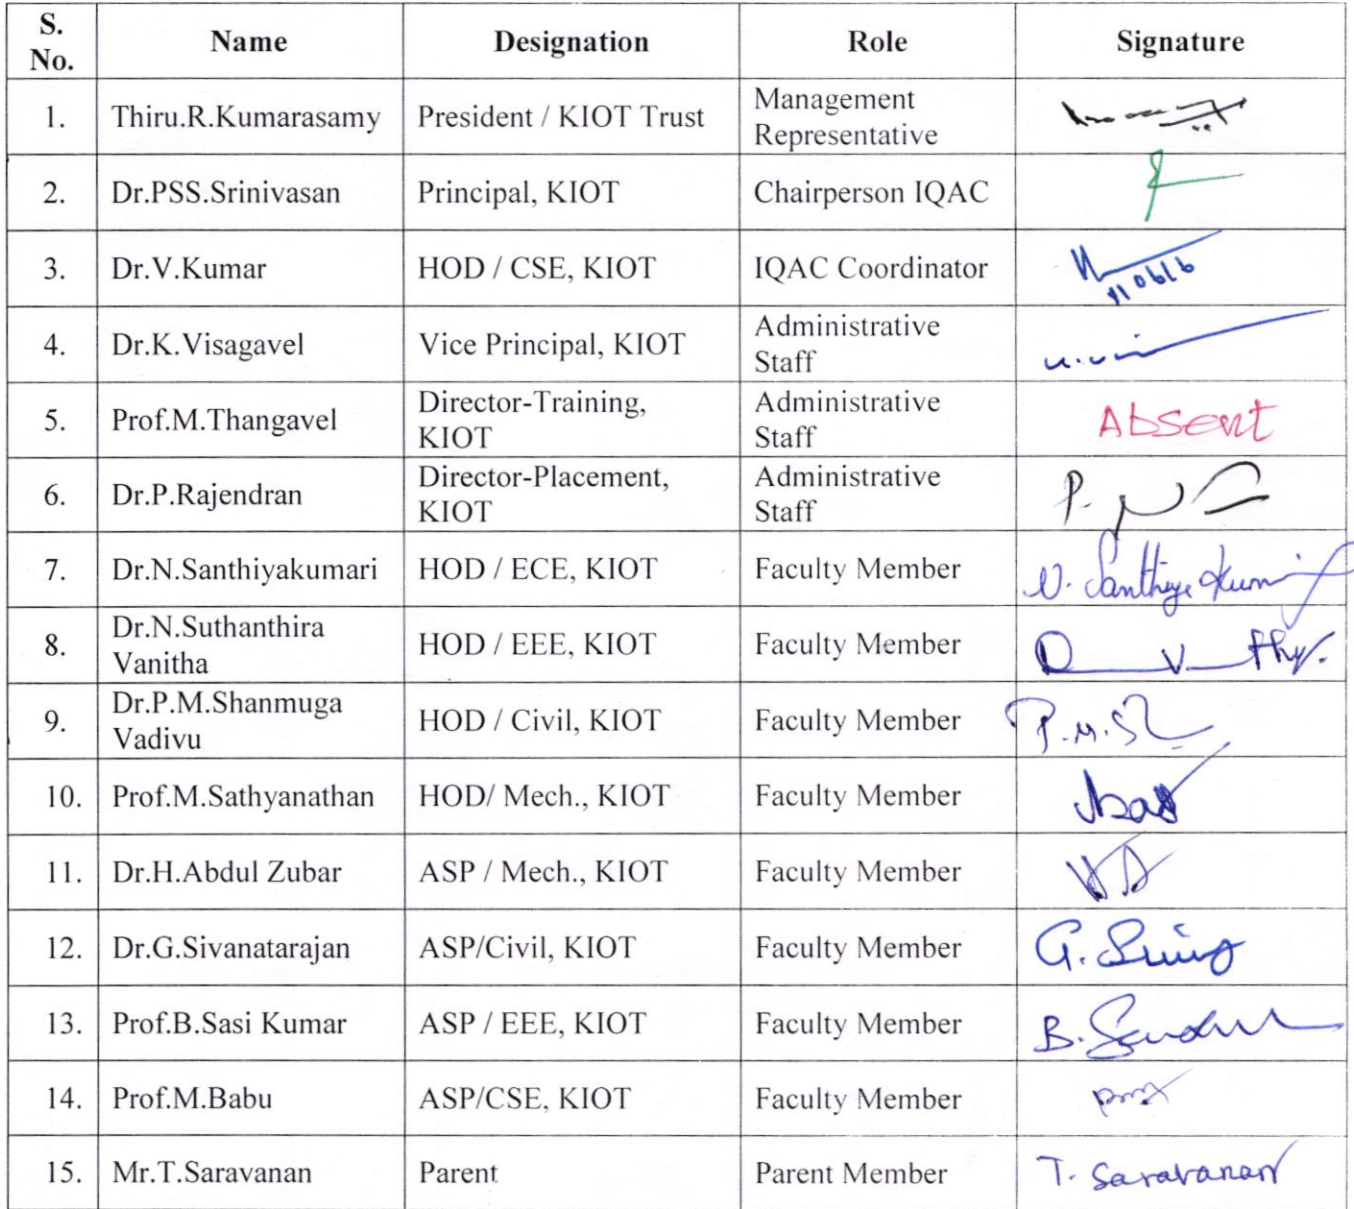 S. No. Name Designation Role Signature
1. Thiru.R.Kumarasamy President / KIOT Trust Management Representative
2. Dr.PSS.Srinivasan Principal, KIOT Chairperson IQAC
3. Dr.V.Kumar HOD / CSE, KIOT IQAC Coordinator
4. Dr.K.Visagavel Vice Principal, KIOT Administrative Staff
5. Prof.M.Thangavel Director-Training, KIOT Administrative Staff Absent
6. Dr.P.Rajendran Director-Placement, KIOT Administrative Staff P.
7. Dr.N.Santhiyakumari HOD / ECE, KIOT Faculty Member
8. Dr.N.Suthanthira Vanitha HOD / EEE, KIOT Faculty Member
9. Dr.P.M.Shanmuga Vadivu HOD / Civil, KIOT Faculty Member
10. Prof.M.Sathyanathan HOD/ Mech., KIOT Faculty Member
11. Dr.H.Abdul Zubar ASP / Mech., KIOT Faculty Member
12. Dr.G.Sivanatarajan ASP/Civil, KIOT Faculty Member G.
13. Prof.B.Sasi Kumar ASP / EEE, KIOT Faculty Member B.
14. Prof.M.Babu ASP/CSE, KIOT Faculty Member
15. Mr.T.Saravanan Parent Parent Member T. Saravanan